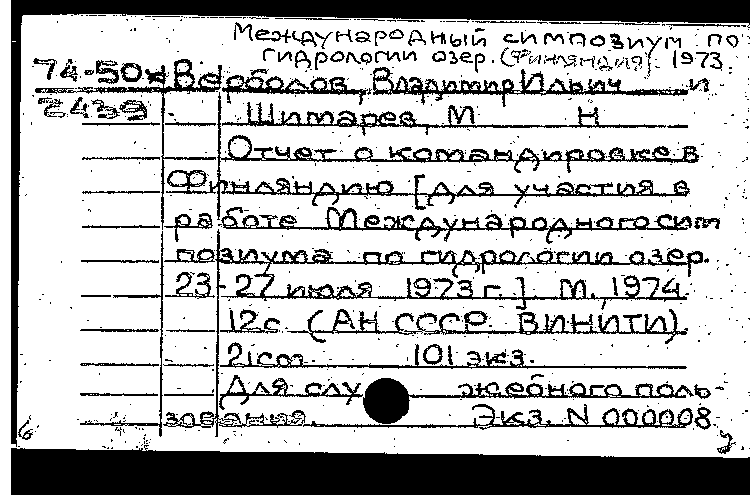 Международный симпозиум по
гидрологии озер. (Финляндия). 1973.
74-50к Верболов, Владимир Ильич и
2439 Шимарев, М Н
Отчет о командировке в
Финляндию [для участия в
работе Международного сим
позиума по гидрологии озер.
23-27 июля 1973 г.]. М., 1974.
12с. (АН СССР. ВИНИТИ).
21см. 101 экз.
Для служебного поль-
зования. Экз. N 000008